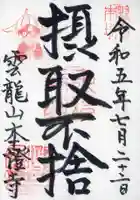 令和五年七月二十二日
摂取不捨
雲龍山本證寺